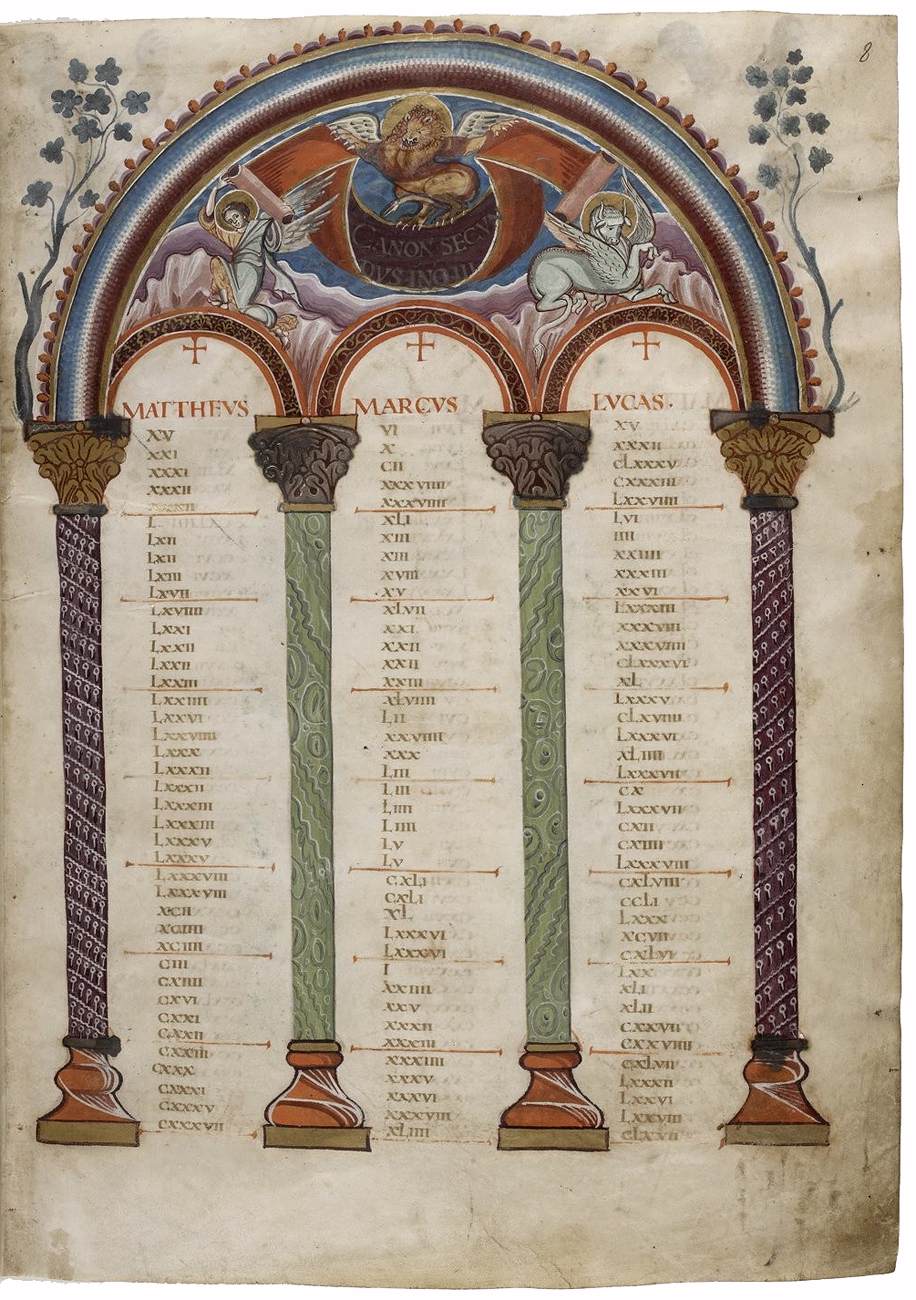 8
CANON SECVN
MATTHEVS
XV
XXI
XXXI
XXXII
L
LXII
LXII
LXIII
LXVII
LXVIIII
LXXI
LXXII
LXXII
LXXIII
LXXIIII
LXXVI
LXXVIIII
LXXX
LXXXII
LXXXII
LXXXIII
LXXXIII
LXXXV
LXXXV
LXXXVIII
LXXXVIII
XCII
XCIIII
XCIIII
CIII
CXIIII
CXVI
CXXI
CXXII
CXXIII
CXXX
CXXXI
CXXXV
CXXXVII
MARCVS
VI
X
CII
XXXVIIII
XXXVIIII
XLI
XIII
XIII
XVIII
XV
XLVII
XXI
XXII
XXII
XXIII
XLVIIII
LII
XXVIIII
XXX
LIII
LIII
LIIII
LIIII
LV
LV
CXLI
CXLI
XL
LXXXVI
LXXXVI
I
XXIIII
XXV
XXXII
XXXIII
XXXIIII
XXXV
XXXVI
XXXVIII
XLIIII
LVCAS·
XV
XXXII
CLXXXV
CXXXIII
LXXVIIII
LVI
IIII
XXIIII
XXXIII
XXVI
LXXXIII
XXXVIII
XXXVIIII
CLXXXVI
XL
LXXXV
CLXVIIII
LXXXVI
XLIIII
LXXXVII
CX
LXXXVII
CXII
CXIIII
LXXXVIII
CXLVIII
CCLI
LXXX
XCVII
CXLVI
LXX
XLI
XLII
CXXVII
CXXVIIII
CXLVII
LXXXII
LXXVI
LXXVIII